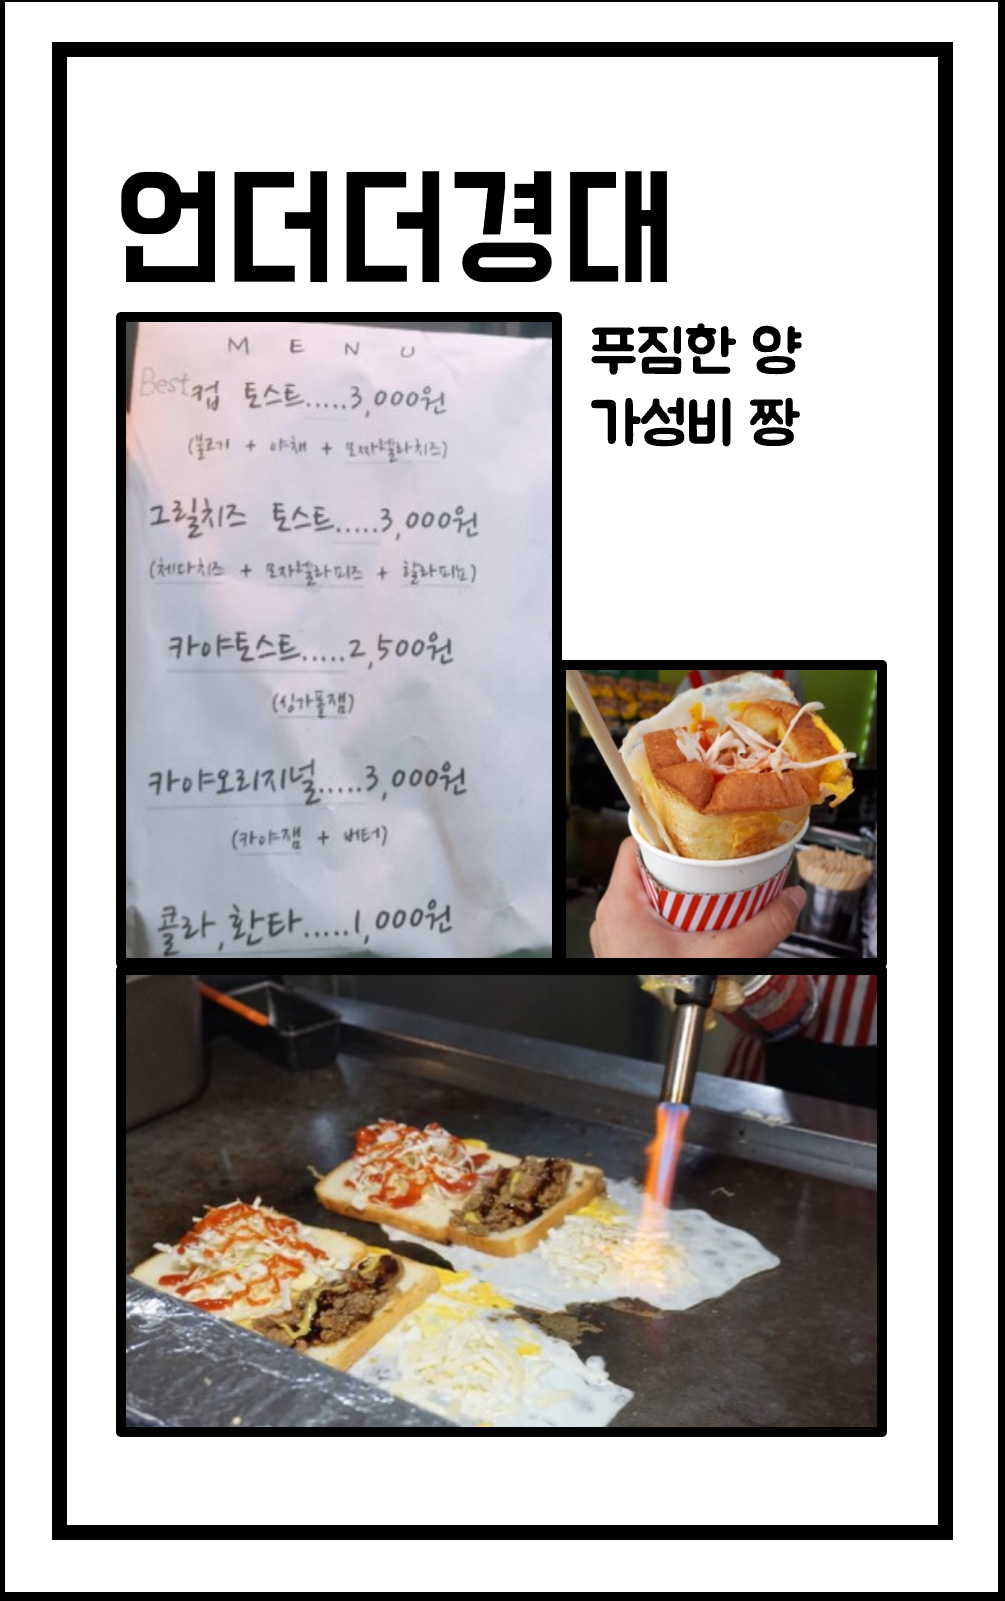 언더더경대
푸짐한 양
가성비 짱
MENU
Best 컵 토스트.....3,000원
(불고기 + 야채 + 모짜렐라치즈)
그릴치즈 토스트.....3,000원
(체다치즈 + 모자렐라피즈 + 할라피뇨)
카야토스트.....2,500원
(싱가폴잼)
카야오리지널.....3,000원
(카야잼 + 버터)
콜라,환타.....1,000원